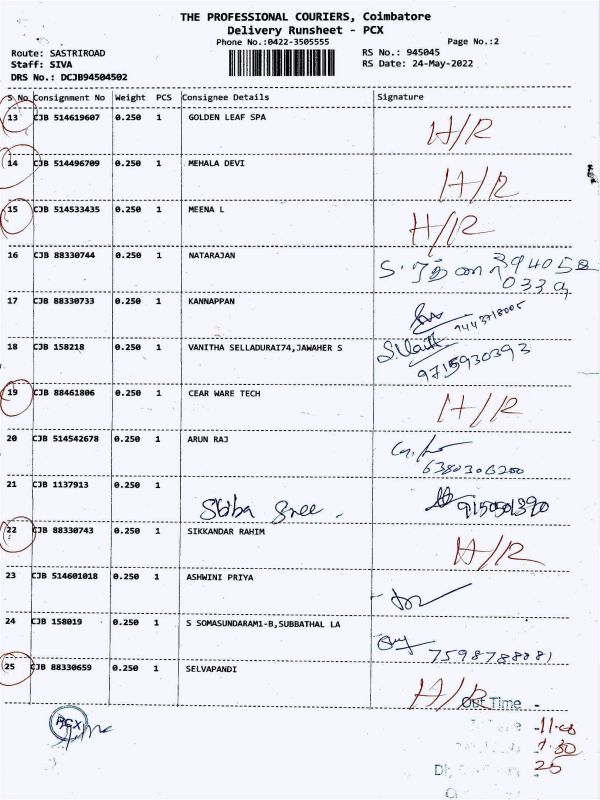 THE PROFESSIONAL COURIERS, Coimbatore
Delivery Runsheet - PCX
Phone No.:0422-3505555 Page No.:2
Route: SASTRIROAD RS No.: 945045
Staff: SIVA RS Date: 24-May-2022
DRS No.: DCJB94504502
S No Consignment No Weight PCS Consignee Details Signature
13 CJB 514619607 0.250 1 GOLDEN LEAF SPA H/R
14 CJB 514496709 0.250 1 MEHALA DEVI H/R
15 CJB 514533435 0.250 1 MEENA L H/R
16 CJB 88330744 0.250 1 NATARAJAN
17 CJB 88330733 0.250 1 KANNAPPAN 9443718005
18 CJB 158218 0.250 1 VANITHA SELLADURAI74,JAWAHER S
9715930393
19 CJB 88461806 0.250 1 CEAR WARE TECH H/R
20 CJB 514542678 0.250 1 ARUN RAJ
6380306200
21 CJB 1137913 0.250 1
Sree
22 CJB 88330743 0.250 1 SIKKANDAR RAHIM H/R
23 CJB 514601018 0.250 1 ASHWINI PRIYA
24 CJB 158019 0.250 1 S SOMASUNDARAM1-B,SUBBATHAL LA
25 CJB 88330659 0.250 1 SELVAPANDI H/R
Out Time -
PCX
25